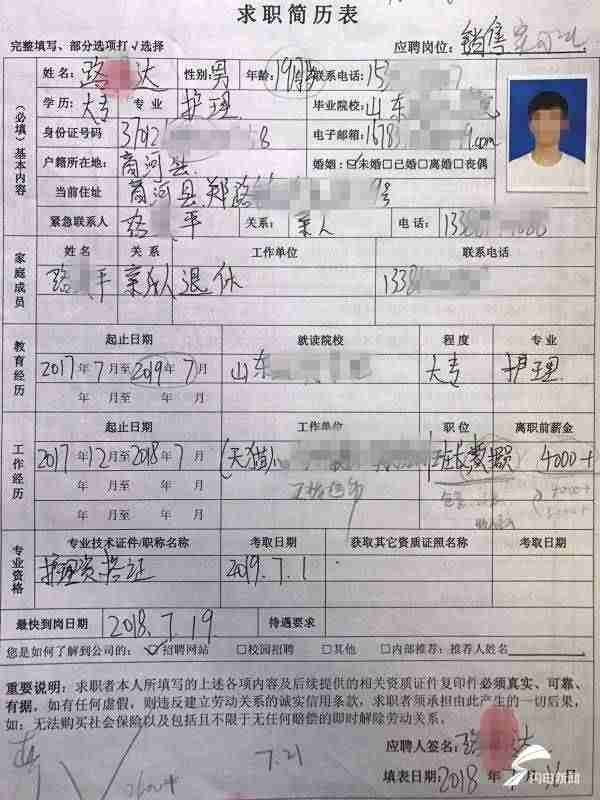 求职简历表
完整填写、部分选项打√选择 应聘岗位: 销售
姓名: 路 达 性别: 男 年龄: 19 联系电话: 15 7
(必填)基本内容
学历: 大专 专业 护理 毕业院校: 山东 院
身份证号码 37012 8 电子邮箱: 1678 9.com
户籍所在地: 商河县 婚姻: ☑未婚□已婚□离婚□丧偶
当前住址 商河县郑路 号
紧急联系人 路 平 关系: 亲人 电话: 133
家庭成员
姓名 关系 工作单位 联系电话
路 平 亲人 退休 133
教育经历
起止日期 就读院校 程度 专业
2017年7月至2019年7月 山东 大专 护理
年 月至 年 月
工作经历
起止日期 工作单位 职位 离职前薪金
2017年12月至2018年7月 (天猫) 班长 4000+
年 月至 年 月
年 月至 年 月
专业资格
专业技术证件/职称名称 考取日期 获取其它资质证照名称 考取日期
护理资格证 2019.7.1
最快到岗日期 2018.7.19 待遇要求
您是如何了解到公司的: ☑招聘网站 □校园招聘 □其他 □内部推荐: 推荐人姓名
重要说明: 求职者本人所填写的上述各项内容及后续提供的相关资质证件复印件必须真实、可靠、
有据。如有任何虚假,则违反建立劳动关系的诚实信用条款,求职者须承担由此产生的一切后果,
如: 无法购买社会保险以及包括且不限于无任何赔偿的即时解除劳动关系。
应聘人签名: 路 达
7.21
填表日期: 2018年7月16日
闪电新闻